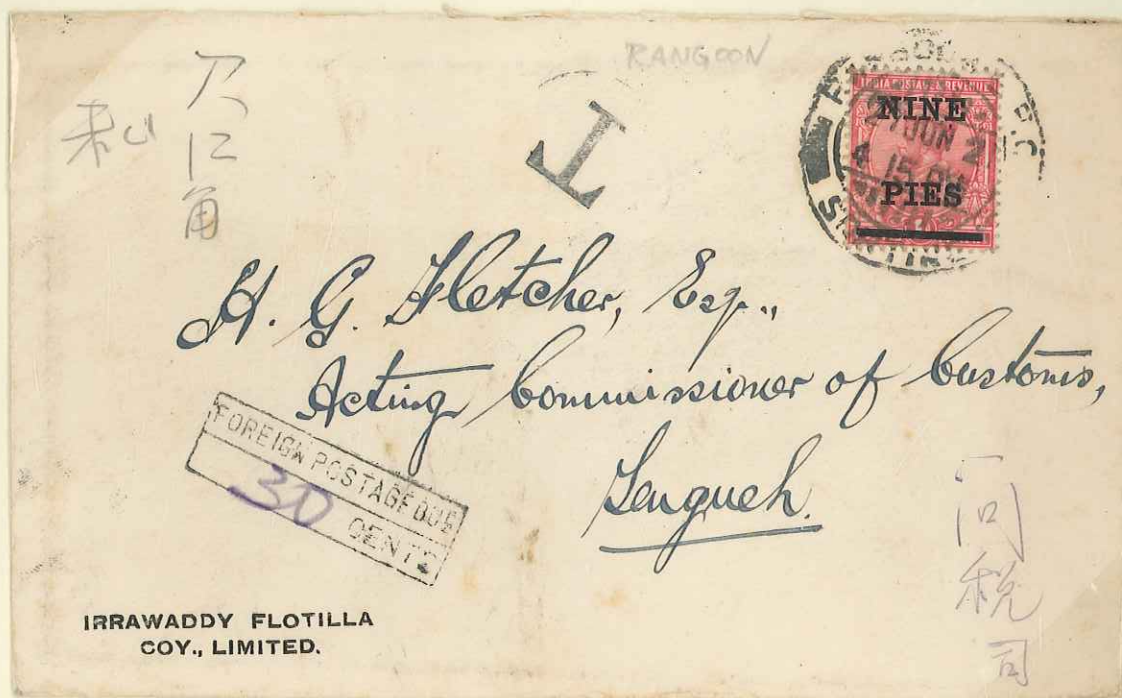 RANGOON
欠仁角
T
INDIA POSTAGE & REVENUE
NINE
PIES
JUN 2
4 15 PM
H. G. Fletcher, Esq.,
Acting Commissioner of Customs,
Tengueh.
FOREIGN POSTAGE DUE
30 CENTS
税司
IRRAWADDY FLOTILLA
COY., LIMITED.